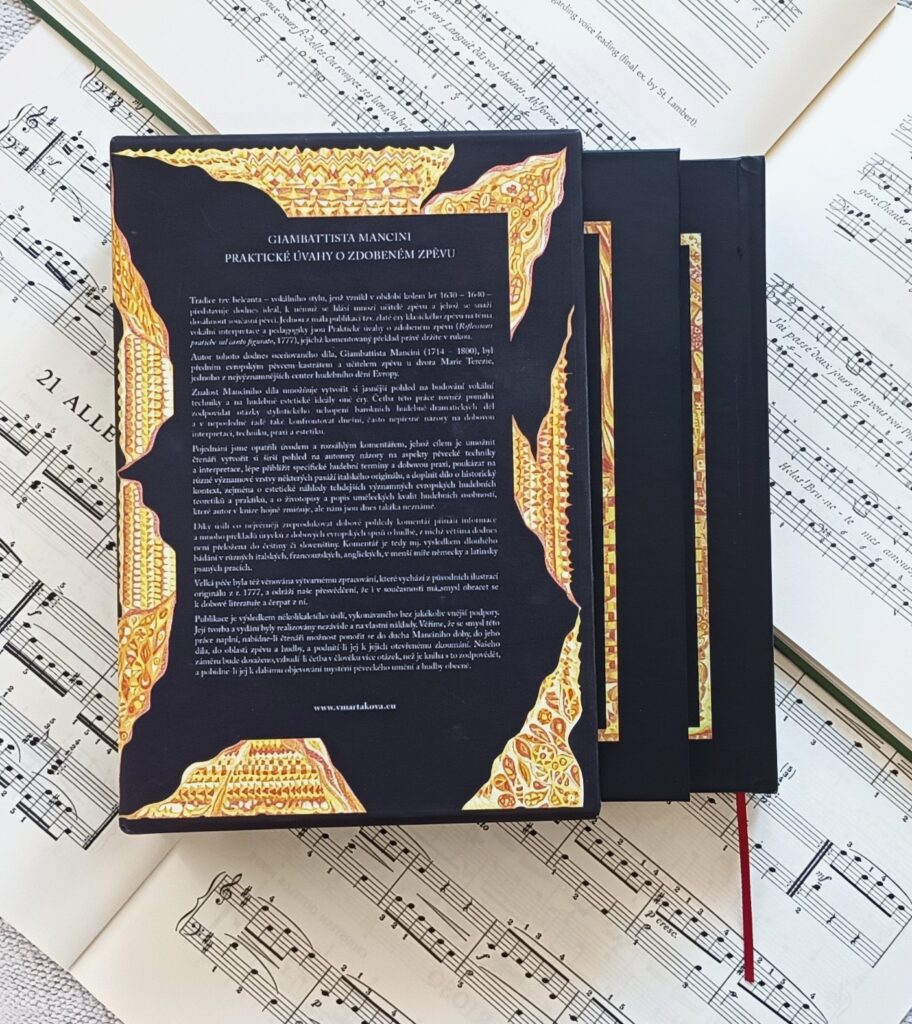 GIAMBATTISTA MANCINI
PRAKTICKÉ ÚVAHY O ZDOBENÉM ZPĚVU
Tradice tzv. belcanta – vokálního stylu, jenž vznikl v období kolem let 1630 – 1640 –
představuje dodnes ideál, k němuž se hlásí mnozí učitelé zpěvu a jehož se snaží
dosáhnout současní pěvci. Jednou z mála publikací tzv. zlaté éry klasického zpěvu na téma
vokální interpretace a pedagogiky jsou Praktické úvahy o zdobeném zpěvu (Riflessioni
pratiche sul canto figurato, 1777), jejichž komentovaný překlad právě držíte v rukou.
Autor tohoto dodnes oceňovaného díla, Giambattista Mancini (1714 – 1800), byl
předním evropským pěvcem-kastrátem a učitelem zpěvu u dvora Marie Terezie,
jednoho z nejvýznamnějších center hudebního dění Evropy.
Znalost Manciniho díla umožňuje vytvořit si jasnější pohled na budování vokální
techniky a na hudebně estetické ideály oné éry. Četba této práce rovněž pomáhá
zodpovídat otázky stylistického uchopení barokních hudebně-dramatických děl
a v neposlední řadě také konfrontovat dnešní, často nepřesné názory na dobovou
interpretaci, techniku, praxi a estetiku.
Pojednání jsme opatřili úvodem a rozsáhlým komentářem, jehož cílem je umožnit
čtenáři vytvořit si širší pohled na autorovy názory na aspekty pěvecké techniky
a interpretace, lépe přiblížit specifické hudební termíny a dobovou praxi, poukázat na
různé významové vrstvy některých pasáží italského originálu, a doplnit dílo o historický
kontext, zejména o estetické náhledy tehdejších významných evropských hudebních
teoretiků a praktiků, a o životopisy a popis uměleckých kvalit hudebních osobností,
které autor v knize hojně zmiňuje, ale nám jsou dnes takřka neznámé.
Díky úsilí co nejvěrněji zreprodukovat dobové pohledy komentář přináší informace
a mnoho překladů úryvků z dobových evropských spisů o hudbě, z nichž většina dosud
není přeložena do češtiny či slovenštiny. Komentář je tedy mj. výsledkem dlouhého
bádání v různých italských, francouzských, anglických, v menší míře německy a latinsky
psaných pracích.
Velká péče byla též věnována výtvarnému zpracování, které vychází z původních ilustrací
originálu z r. 1777, a odráží naše přesvědčení, že i v současnosti má smysl obracet se
k dobové literatuře a čerpat z ní.
Publikace je výsledkem několikaletého úsilí, vykonávaného bez jakékoliv vnější podpory.
Její tvorba a vydání byly realizovány nezávisle a na vlastní náklady. Věříme, že se smysl této
práce naplní, nabídne-li čtenáři možnost ponořit se do ducha Manciniho doby, do jeho
díla, do oblasti zpěvu a hudby, a podnítí-li jej k jejich otevřenému zkoumání. Našeho
záměru bude dosaženo, vzbudí-li četba v člověku více otázek, než je kniha s to zodpovědět,
a pobídne-li jej k dalšímu objevování mysterií pěveckého umění a hudby obecně.
www.vmartakova.eu
21 ALLE
regarding voice leading (final ex. by St. Lambert).
je sers Languir dās vos chaines. Ah forcez
doux cœurs fi-delles. Ou rompez ses liens, Ou bri
gere, Chanter
j'ai passé deux jours sans vous
Helas! Bru-ne-le
mer amoure
mf
mf
p cresc.
p
p